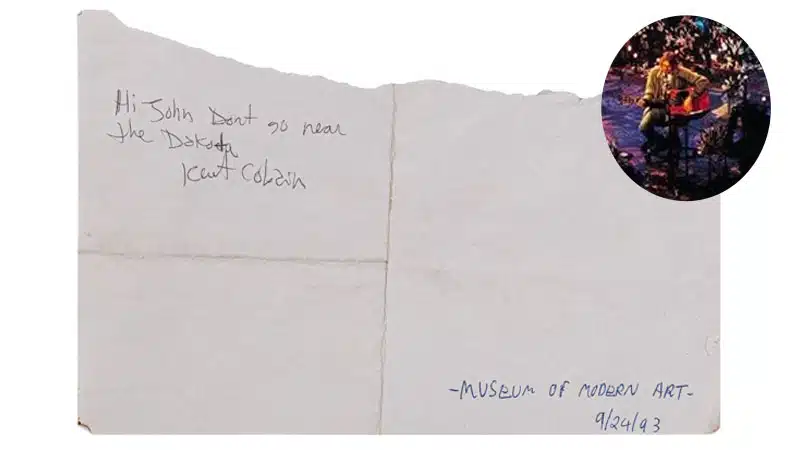 Hi John Dont go near
the Dakota
Kurt Cobain
-MUSEUM OF MODERN ART-
9/24/93